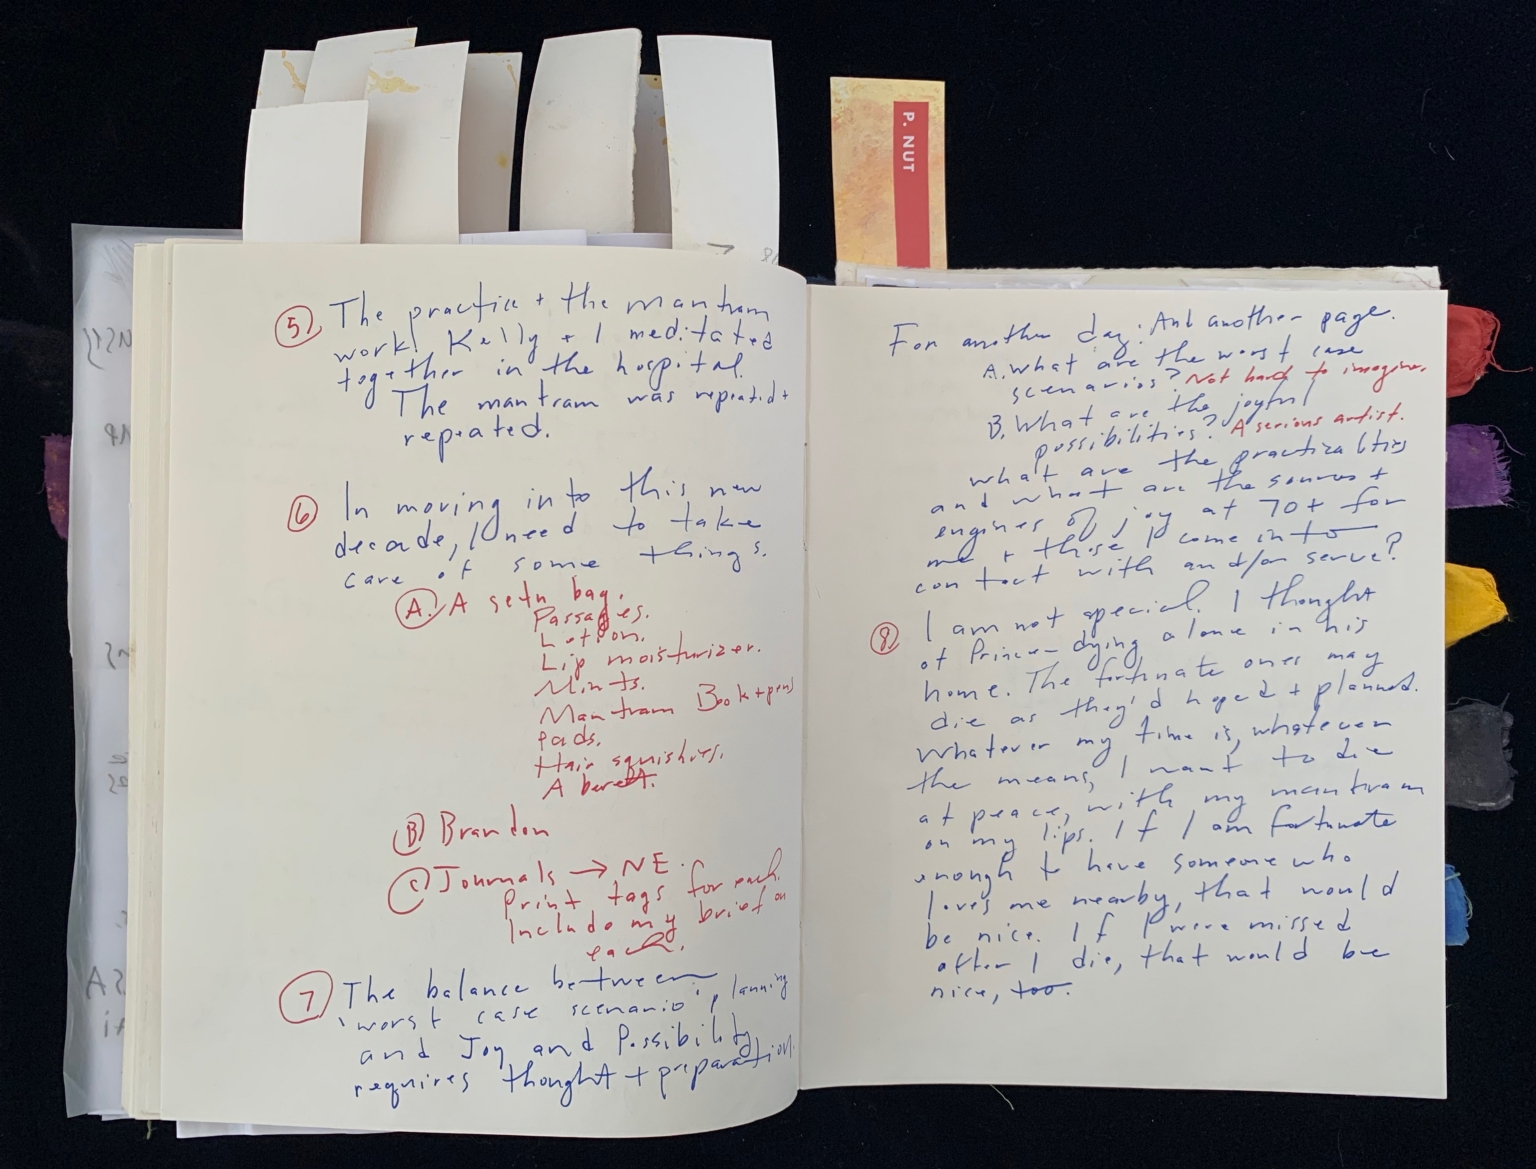 P. NUT
5) The practice + the mantram
work! Kelly + I meditated
together in the hospital.
The mantram was repeated +
repeated.
6) In moving into this new
decade, I need to take
care of some things.
A. A setu bag.
Passages.
Lotion.
Lip moisturizer.
Mints.
Mantram Book + pens
Pads.
Hair squishies.
A beret.
B) Brandon
C) Journals → NE.
Print tags for each.
Include my brief on
each.
7) The balance between
'worst case scenario' planning
and Joy and Possibility
requires thought + preparation.
For another day: And another page.
A. What are the worst case
scenarios? Not hard to imagine.
B. What are the joyful
possibilities? A serious artist.
What are the practicalities
and what are the sources +
engines of joy at 70+ for
me + those I come into
contact with and/or serve?
8) I am not special. I thought
of Prince – dying alone in his
home. The fortunate ones may
die as they'd hoped + planned.
Whatever my time is, whatever
the means, I want to die
at peace, with my mantram
on my lips. If I am fortunate
enough to have someone who
loves me nearby, that would
be nice. If I were missed
after I die, that would be
nice, too.